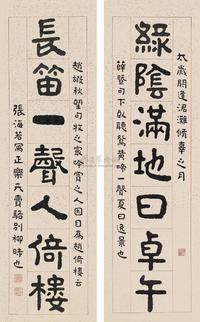 太歲閼逢涒灘修辜之月
綠陰滿地日卓午
句下以聽鶯黃啼一聲夏日逸景也
趙嘏秋望句牧之家吟賞之人因目為趙倚樓云
長笛一聲人倚樓
張海若寫正樂天賣駱別柳時也